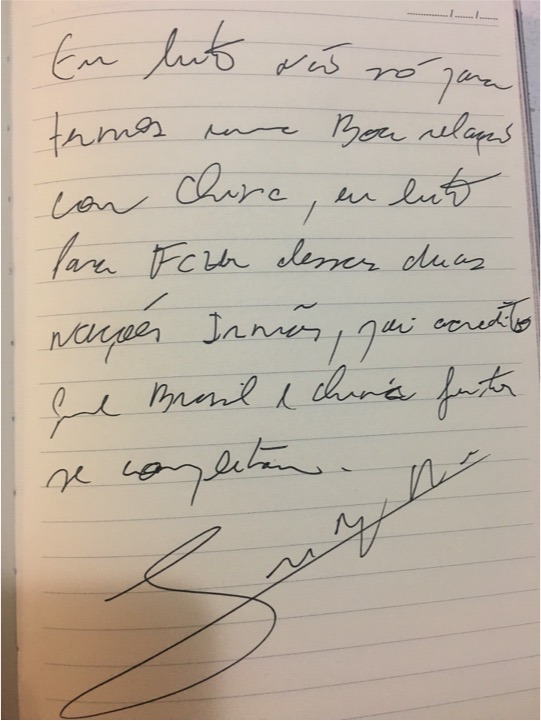 Eu luto não só para
termos uma Boa relação
com China, eu luto
Para Fazer dessas duas
Nações Irmãs, pois acredito
que Brasil e China juntos
se completam.